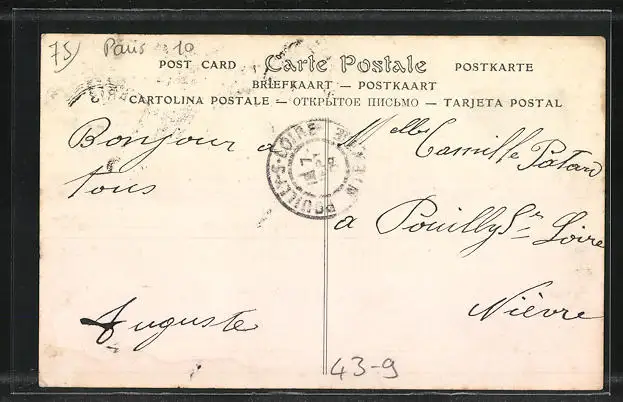 75 Paris 10
Carte Postale
POST CARD
POSTKARTE
BRIEFKAART — POSTKAART
CARTOLINA POSTALE — ОТКРЫТОЕ ПИСЬМО — TARJETA POSTAL
Bonjour a
tous
Auguste
POUILLY-S-LOIRE
NIEVRE
Melle Camille Patard
a Pouilly Sr Loire
Nièvre
43-9